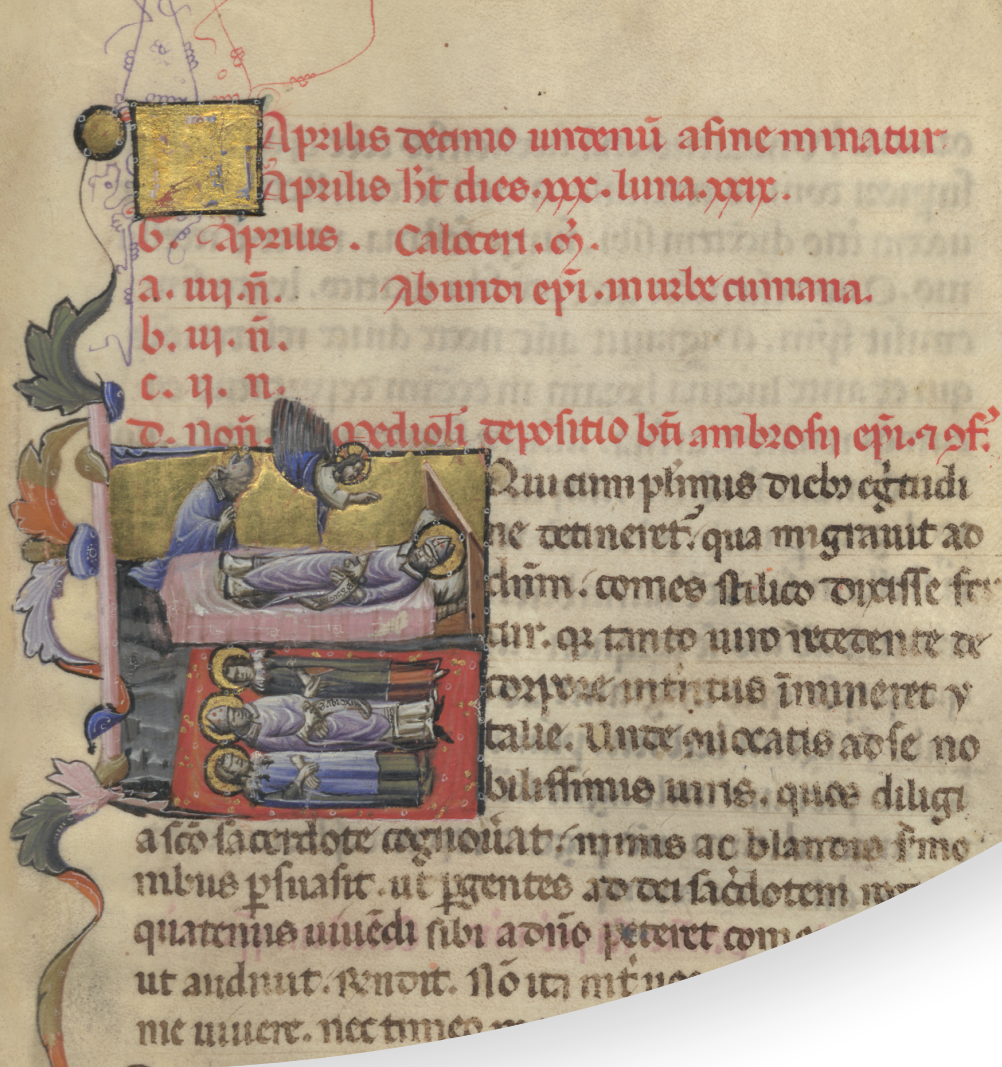 Aprilis decimo undenū afine minatur
Aprilis h̄t dies .xxx. luna .xxix.
G. Aprilis. Caloceri. m̄.
a. iiij. n̄. Abundi ep̄i. in urbe cumana.
b. iij. n̄.
c. ij. n.
d. Non̄. Mediol̄i depositio bt̄i ambrosij ep̄i. ⁊ ɔf.
Qui cum pl̄imus dieb; eg̾tudi
ne detineret̾. qua migrauit ad
dn̄m. comes stilico dixisse fer
tur. q; tanto uiro recedente de
corpore interitus īmineret y
talie. Unde aduocatis ad se no
bilissimis uiris. quos diligi
a sc̄o sacerdote cognouāt. minis ac blandis s̾mo
nibus ꝑsuasit. ut ꝑgentes ad dei sac̾dotem
quatenus uiuēdi sibi a dn̄o peteret
ut audiuit. Rendit. Nō ita int̾
me uiuere. nec timeo